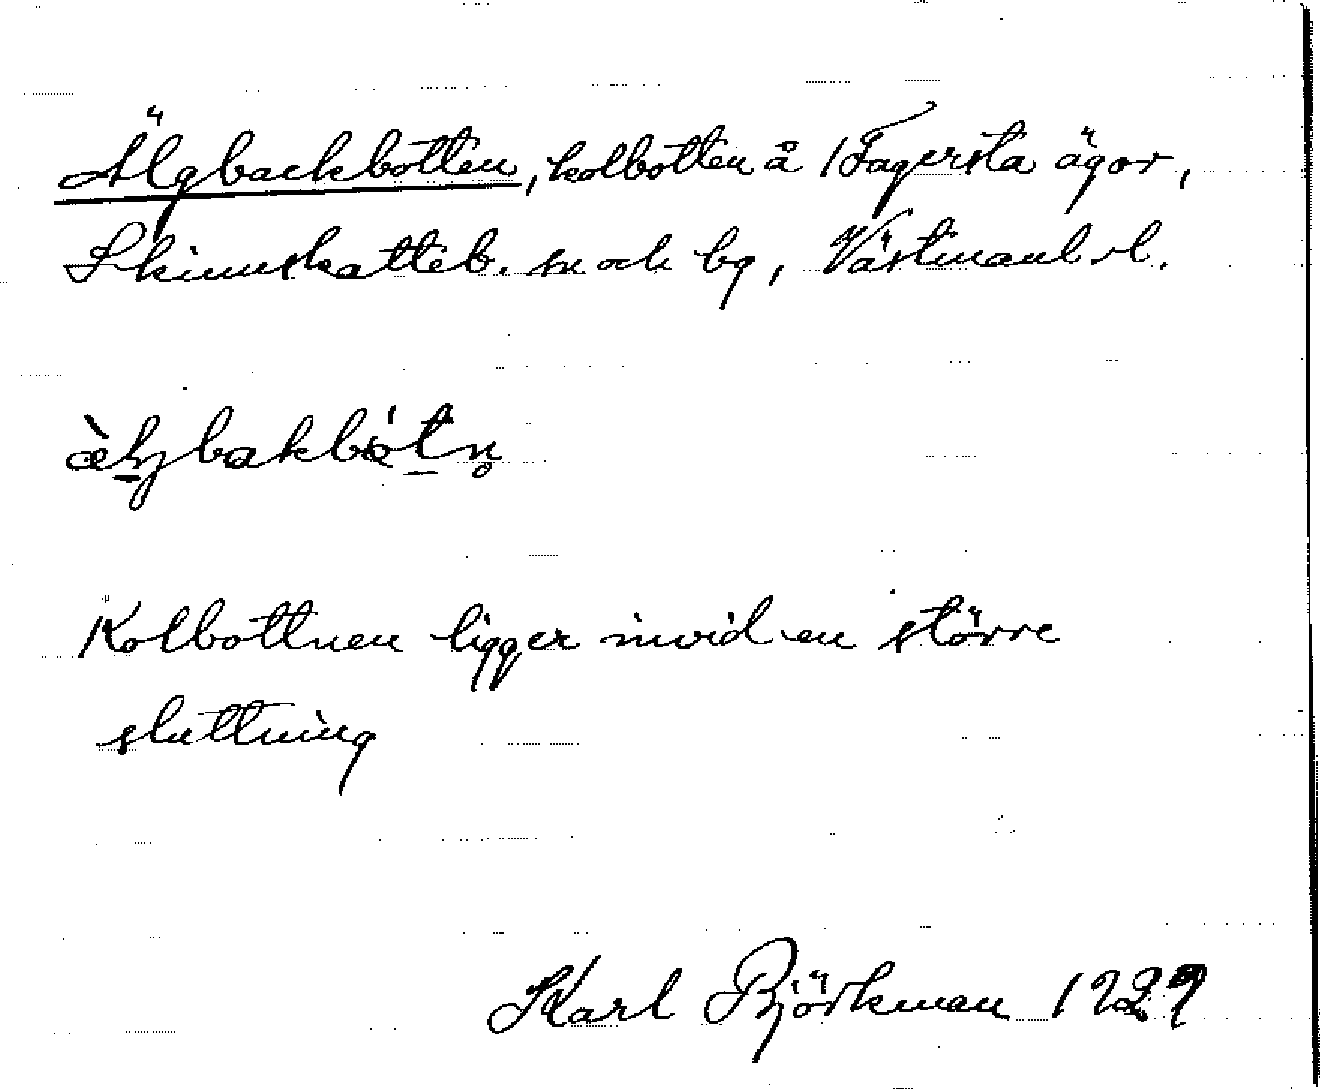 Älgbackbotten, kolbotten å Fagersta ägor,
Skinnskatteb. sn och bg, Västmanl. l.
Kolbottnen ligger invid en större
sluttning
Karl Björkman 1929